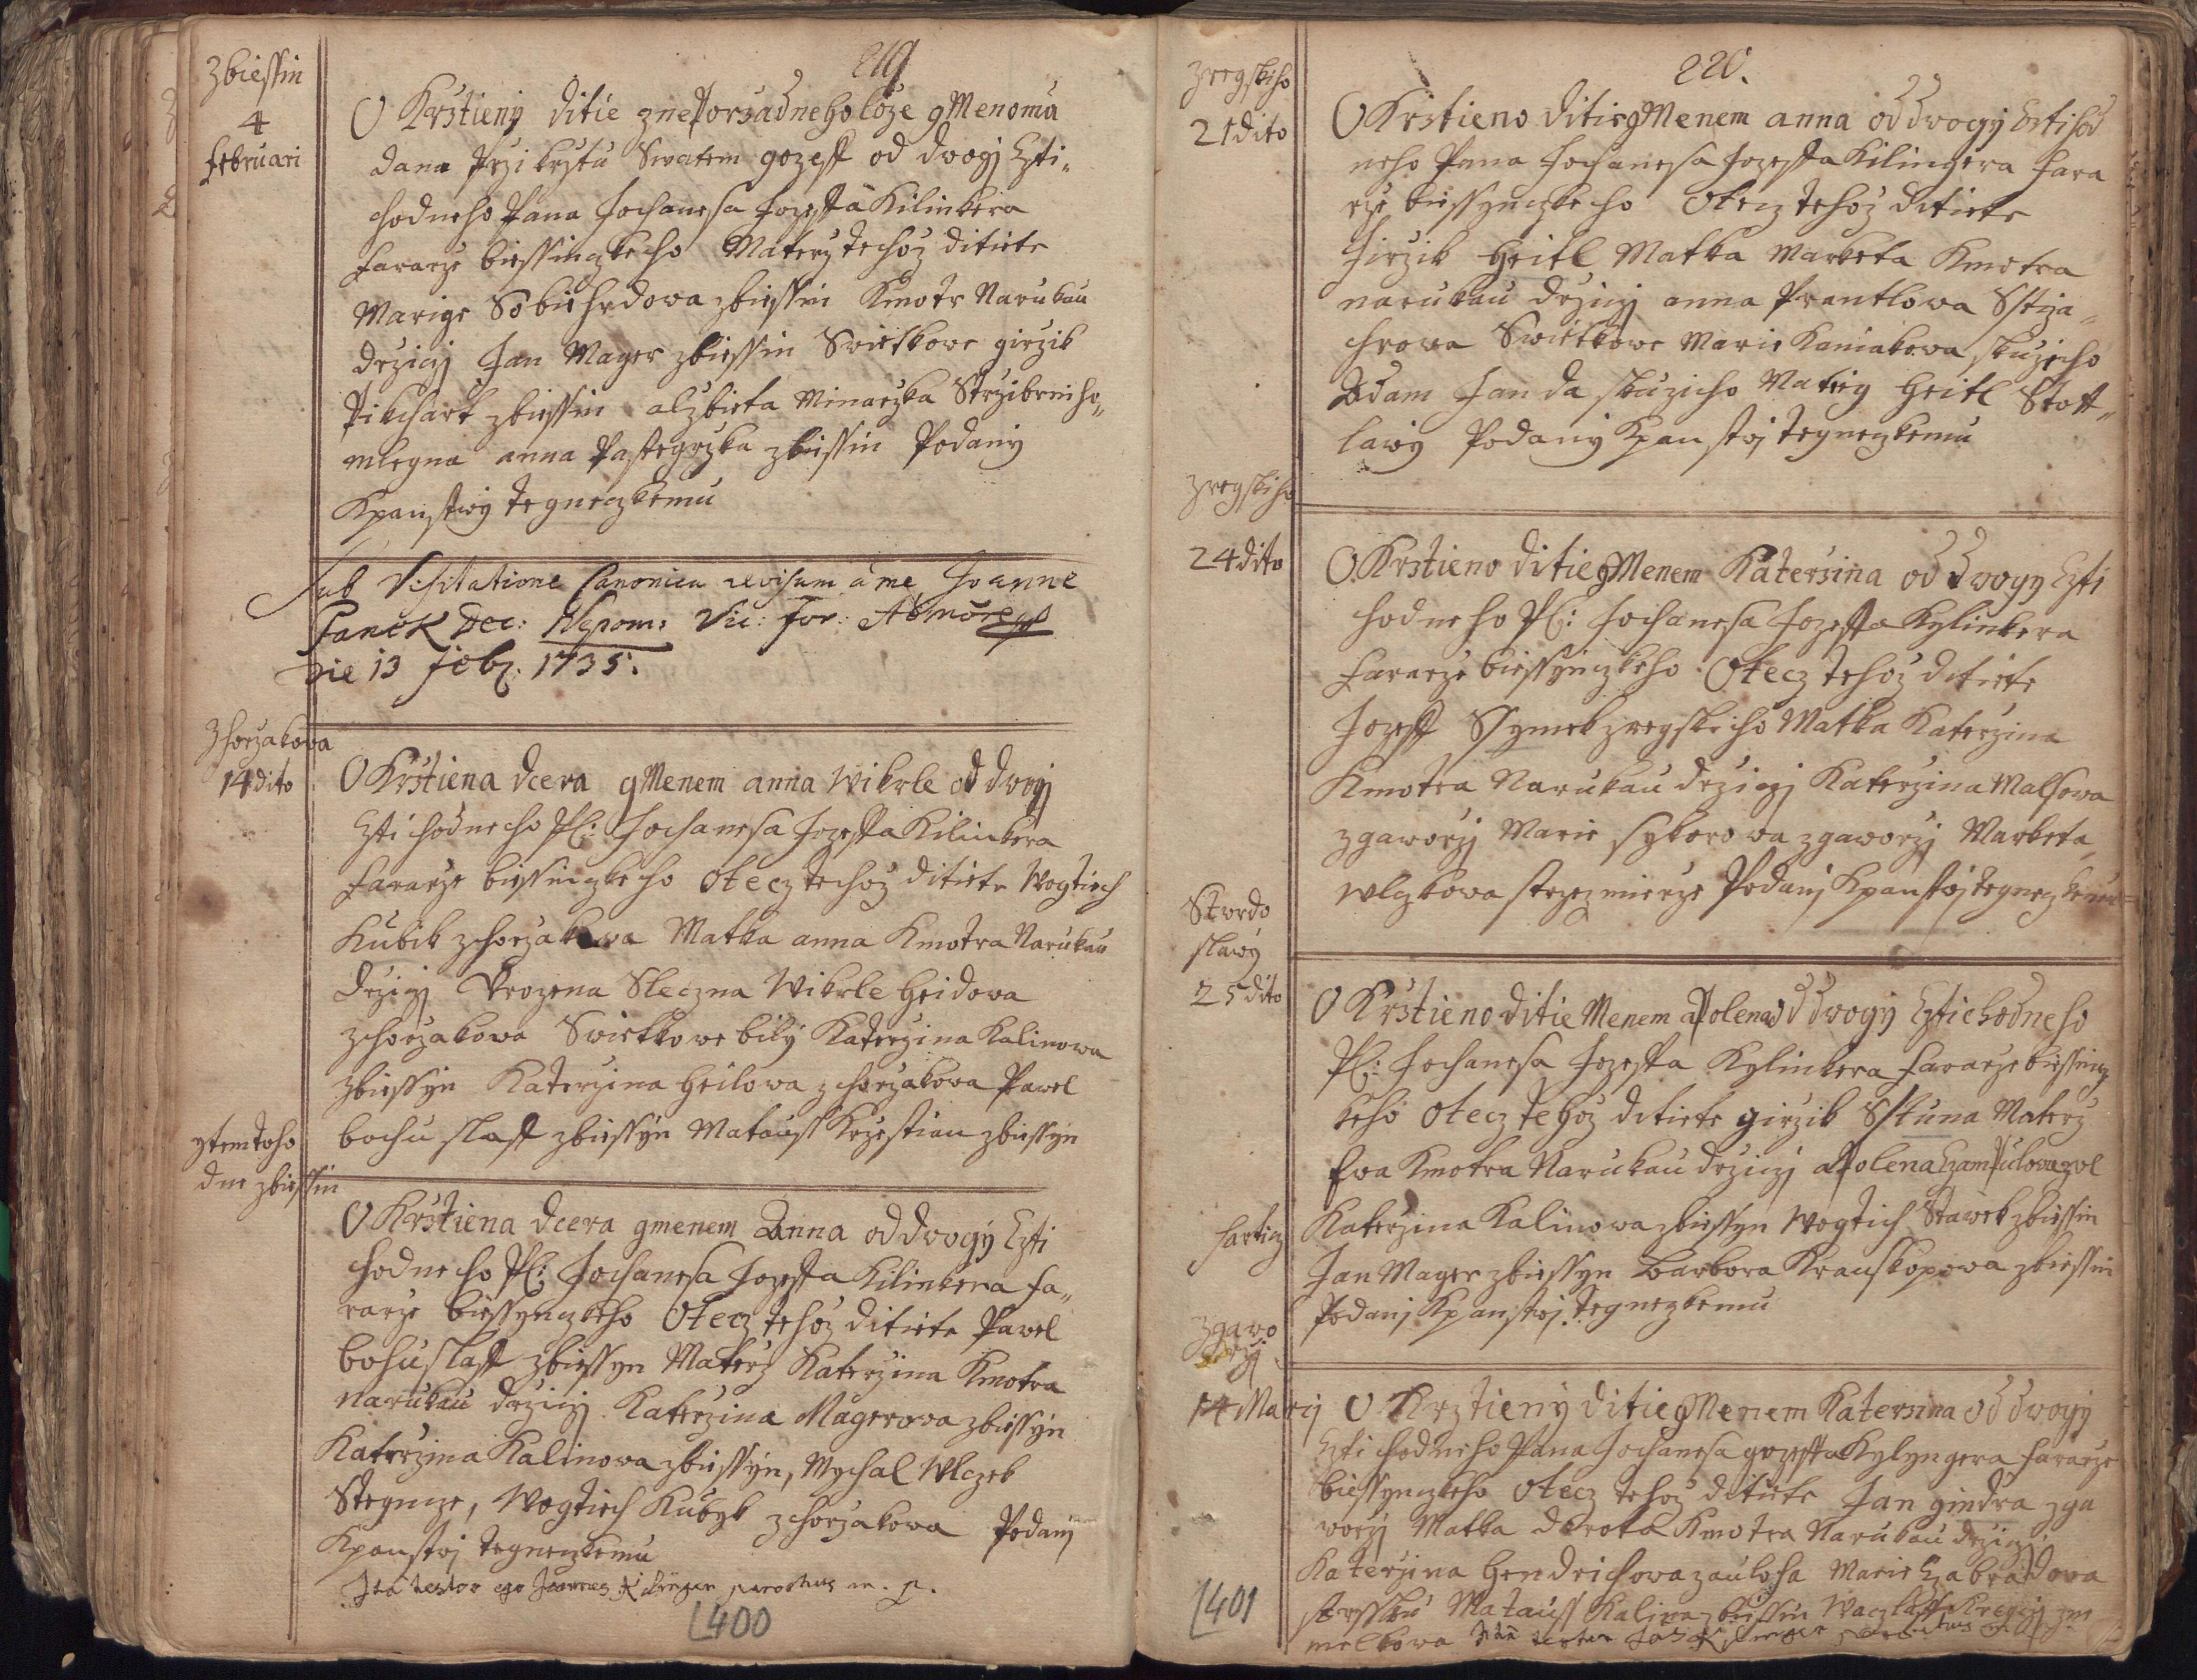 219
Zbiessin
4
februari
O Krstieny ditie zneporsadneho loze gMenoma
dana przi krztu Swatem gozeff od dwogj Czti„
hodneho Pana Johanesa Jozeffa Kilinkera
fararze biessinczkeho Materz tehoz ditiete
Marige Sobiehrdowa zbiessin Kmotr Narukau
drziczj Jan Mager zbiessin Swietkowe girzik
Pikhart zbiessin alzbieta Minarzka Strzibrniho„
mlegna anna Pastegrzka zbiessin Podany
Kpanstwy tegneczkemu
Sub Visitatione Canonica revisum a me Joanne
Canck Dec: Nepom: Vic: for:
die 13 febr. 1735.
Zhorzakowa
14 dito
O Krstiena dcera gMenem anna Wikrle od dwogj
Czti hodneho Pl: Johanesa Jozeffa Kilinkera
fararze biessinczkeho Otecz tehoz ditiete Wogtiech
Kubik zhorzakowa Matka anna Kmotra Narukau
drziczj Urozena Sleczna Wikrle Heidowa
zhorzakowa Swietkowe bily Katerzina Kalinowa
zbiessyn Katerzina Heilowa zhorzakowa Pawel
bohuslaff zbiessyn Matauss Krzestian zbiessyn
ztemtoho
dne zbiessin
O Krstiena dcera gmenem Anna od dwogy Czti
hodneho Pl: Johanesa Jozeffa Kilinkera fa„
rarze biessynczkeho Otecz tehoz ditiete Pawel
bohuslaff zbiessyn Materz Katerzina Kmotra
narukau drziczj Katerzina Magerowa zbiessyn
Katerzina Kalinowa zbiessyn, Mychal Wlczek
Stegnicze, Wogtiech Kubyk zhorzakowa Podanj
Kpanstwj tegneczkemu
Ita testor ego Joannes Kilinger parochus m. p.
400
220.
Zregskiho
21 dito
O Krstieno ditie gMenem anna od dwogy Cztihod
neho Pana Johanesa Jozeffa Kilingera fara
rze biessynczkeho Otecz tehoz ditiete
Jirzik Heitl Matka Marketa Kmotra
narukau drziczj anna Prantlowa Sstia„
hrowa Swietkowe Marie Kaniakowa skuziho
Adam Janda skuziho Matieg Heitl Skoff„
lawy Podany Kpanstwj tegneczkemu
Zregskiho
24 dito
O Krstieno ditie gMenem Katersina od dwogy Czti
hodneho Pl: Johanesa Jozeffa Kylinkera
fararze biessynczkeho Otecz tehoz ditiete
Jozeff Ssymek zregskiho Matka Katerzina
Kmotra Narukau drziczj Katerzina Malsowa
zgaworzj Marie sykorowa zgaworzj Marketa
Wlczkowa strzezmierze Podanj Kpanstwj tegneczkemu
Skwrdo
slawy
25 dito
O Krstieno ditie Menem apolena od dwogy Cztiehodneho
Pl: Johanesa Jozeffa Kylinkera fararze biessincz
keho Otecz tehoz ditiete girzik Sstuna Materz
Ewa Kmotra Narukau drziczj apolena Czampulowa zol
farticz
Katerzina Kalinowa zbiessyn Wogtieh Stawek zbiessin
Jan Mager zbiessyn barbora Krauskopowa zbiessin
Podanj Kpanstwj tegneczkemu
zgawo
rzj
14 Marcj
O Krztieny ditie gMenem Katersina od dwogy
Czti hodneho Pana Johanesa gozeffa Kylyngera fararze
biessynczkeho Otecz tehoz ditiete Jan gindra zga
worzj Matka dorota Kmotra Narukau drziczj
Katerzina Hendrichowa zauloha Marie Czabradowa
Matauss Kalina zbiessin Waczlaff Kregczj zne
melkowa Ita testor Jos: Kilinger parochus m. p.
401